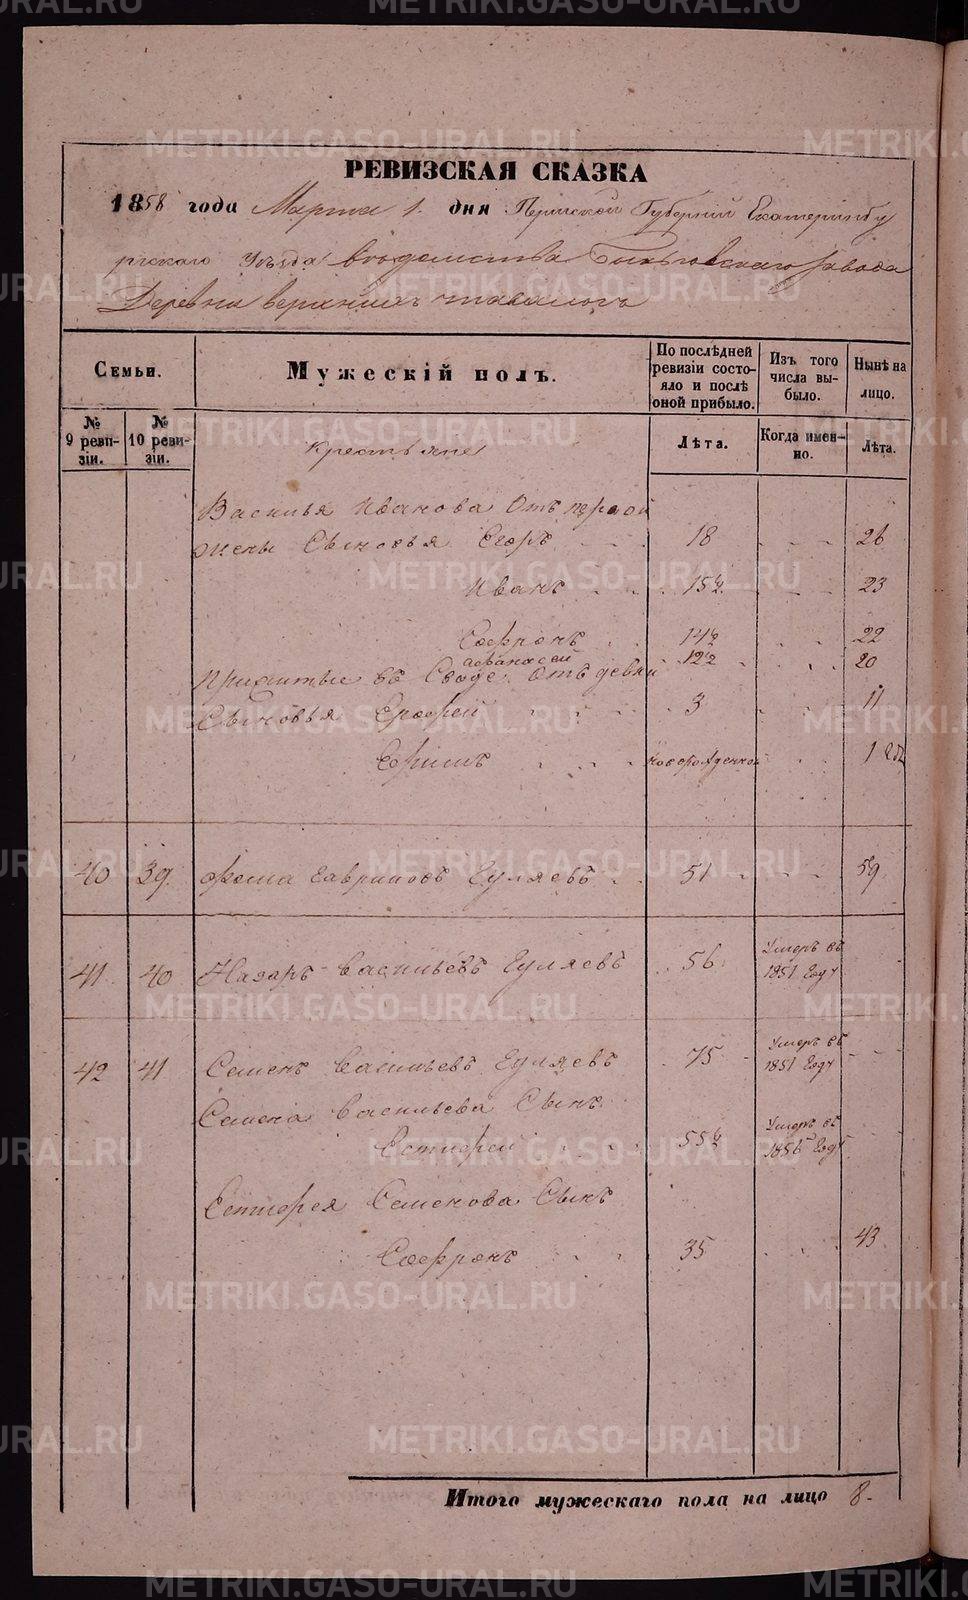 РЕВИЗСКАЯ СКАЗКА
1858 года Марта 1. дня Пермской Губернiи Екатеринбу
ргскаго Уѣзда вѣдомства завода
Деревни верхнихъ
Семьи.
Мужескiй полъ.
По послѣдней ревизiи состояло и послѣ оной прибыло.
Изъ того числа выбыло.
Нынѣ на лицо.
№ 9 ревизiи.
№ 10 ревизiи.
Лѣта.
Когда именно.
Лѣта.
Крестьяне
Василья Иванова Отъ первой
жены Сыновья Егоръ 18 26
Иванъ 15½ 23
Софронъ 14½ 22
афанасей 12½ 20
Прижитые въ Сводѣ Отъ девки
Сыновья Ерофей 3 11
Ефимъ новорожденной 1
40 39 Фома Гавриловъ Гуляевъ 51 59
41 40 Назаръ Васильевъ Гуляевъ 56 Умеръ въ 1851 Году
42 41 Семенъ Васильевъ Гуляевъ 75 Умеръ въ 1851 Году
Семена Васильева Сынъ
Естифей 55½ Умеръ въ 1856 Году
Естифея Семенова Сынъ
Софронъ 35 43
Итого мужескаго пола на лицо 8
METRIKI.GASO-URAL.RU